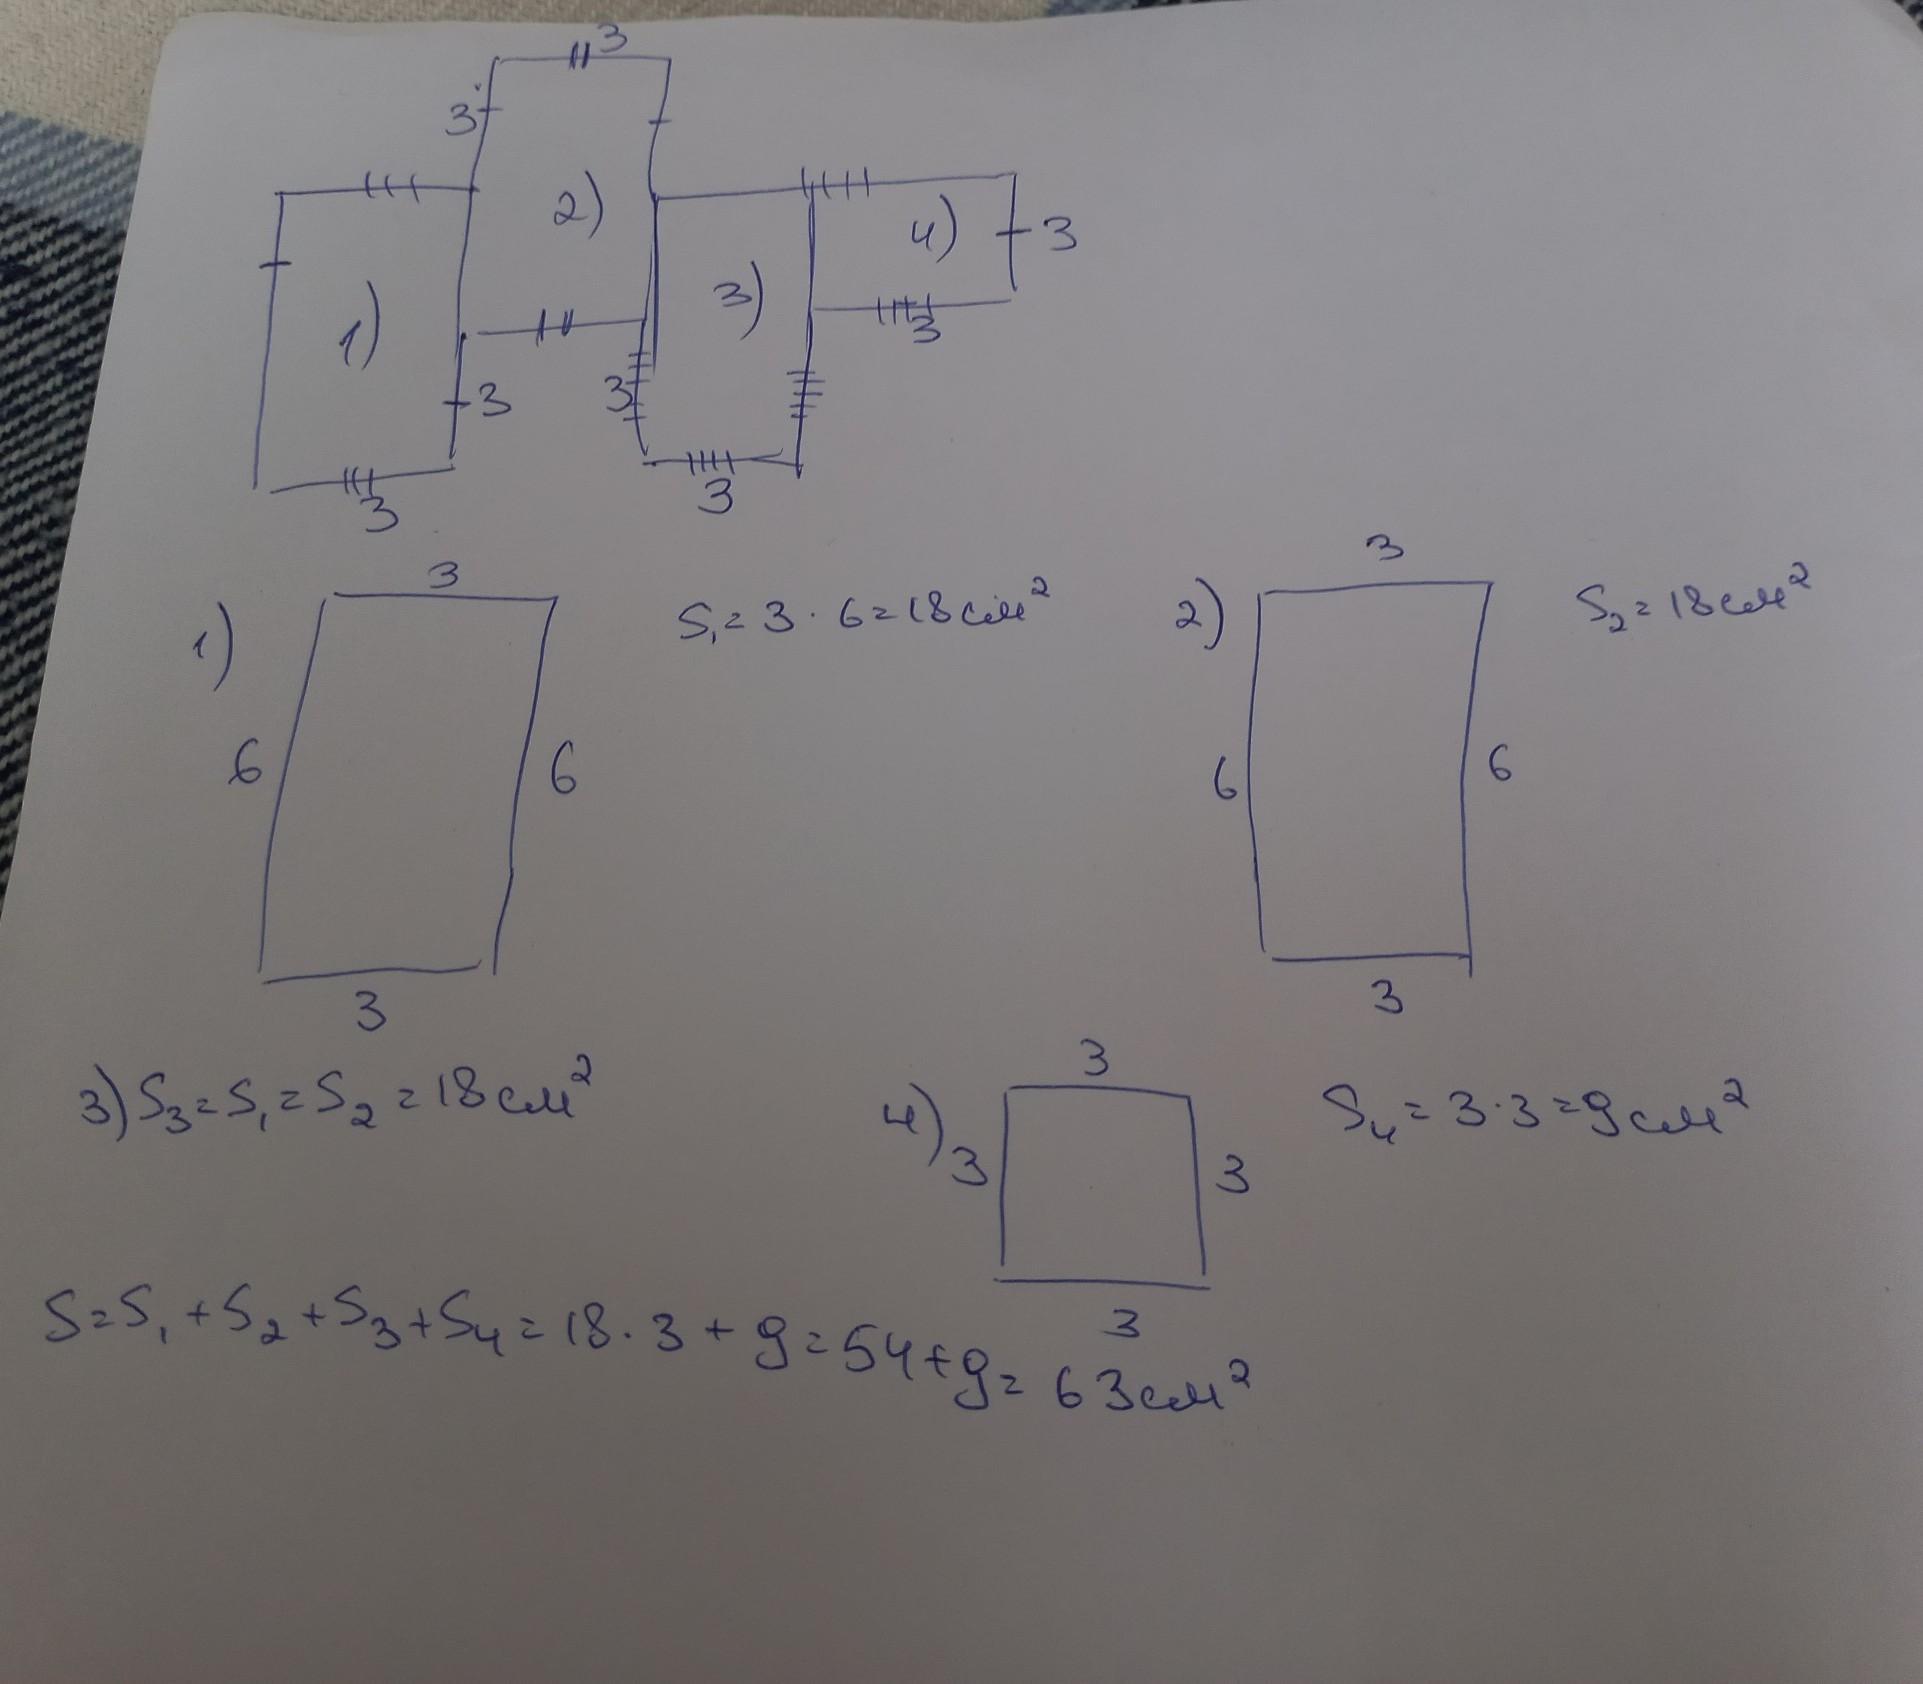 3
3
2)
4)
3
3)
1)
3
3
3
3
3
1)
3
6
6
3
S₁ = 3 · 6 = 18 см²
2)
3
6
6
3
S₂ = 18 см²
3) S₃ = S₁ = S₂ = 18 см²
4)
3
3
3
3
S₄ = 3 · 3 = 9 см²
S = S₁ + S₂ + S₃ + S₄ = 18 · 3 + 9 = 54 + 9 = 63 см²